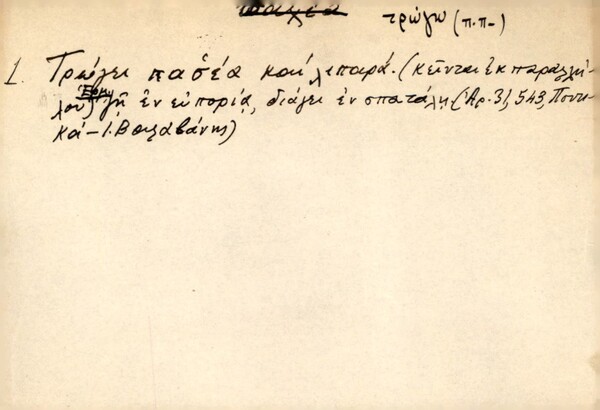 τρώγω (π.π-)
1. Τρώγει πασέα καί λιπαρά. (κεῖνται ἐκ παραλλή-
λου) Ἑρμ. ζῇ ἐν εὐπορίᾳ, διάγει ἐν σπατάλῃ (Ἀρ. 31, 543, Ποντι-
κά - Ι. Βαλαβάνης)